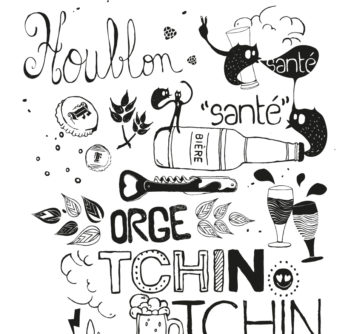 Houblon
santé
"santé"
BIÈRE
ORGE
TCHIN
TCHIN